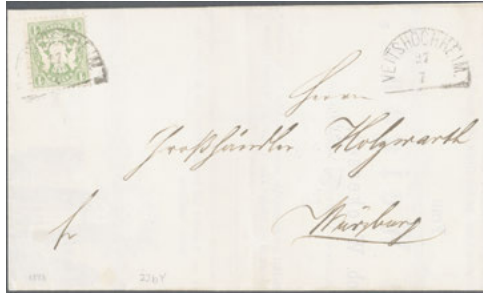 VEITSHÖCHHEIM
27
7
Herrn
Großhändler Holzwarth
Würzburg
fr